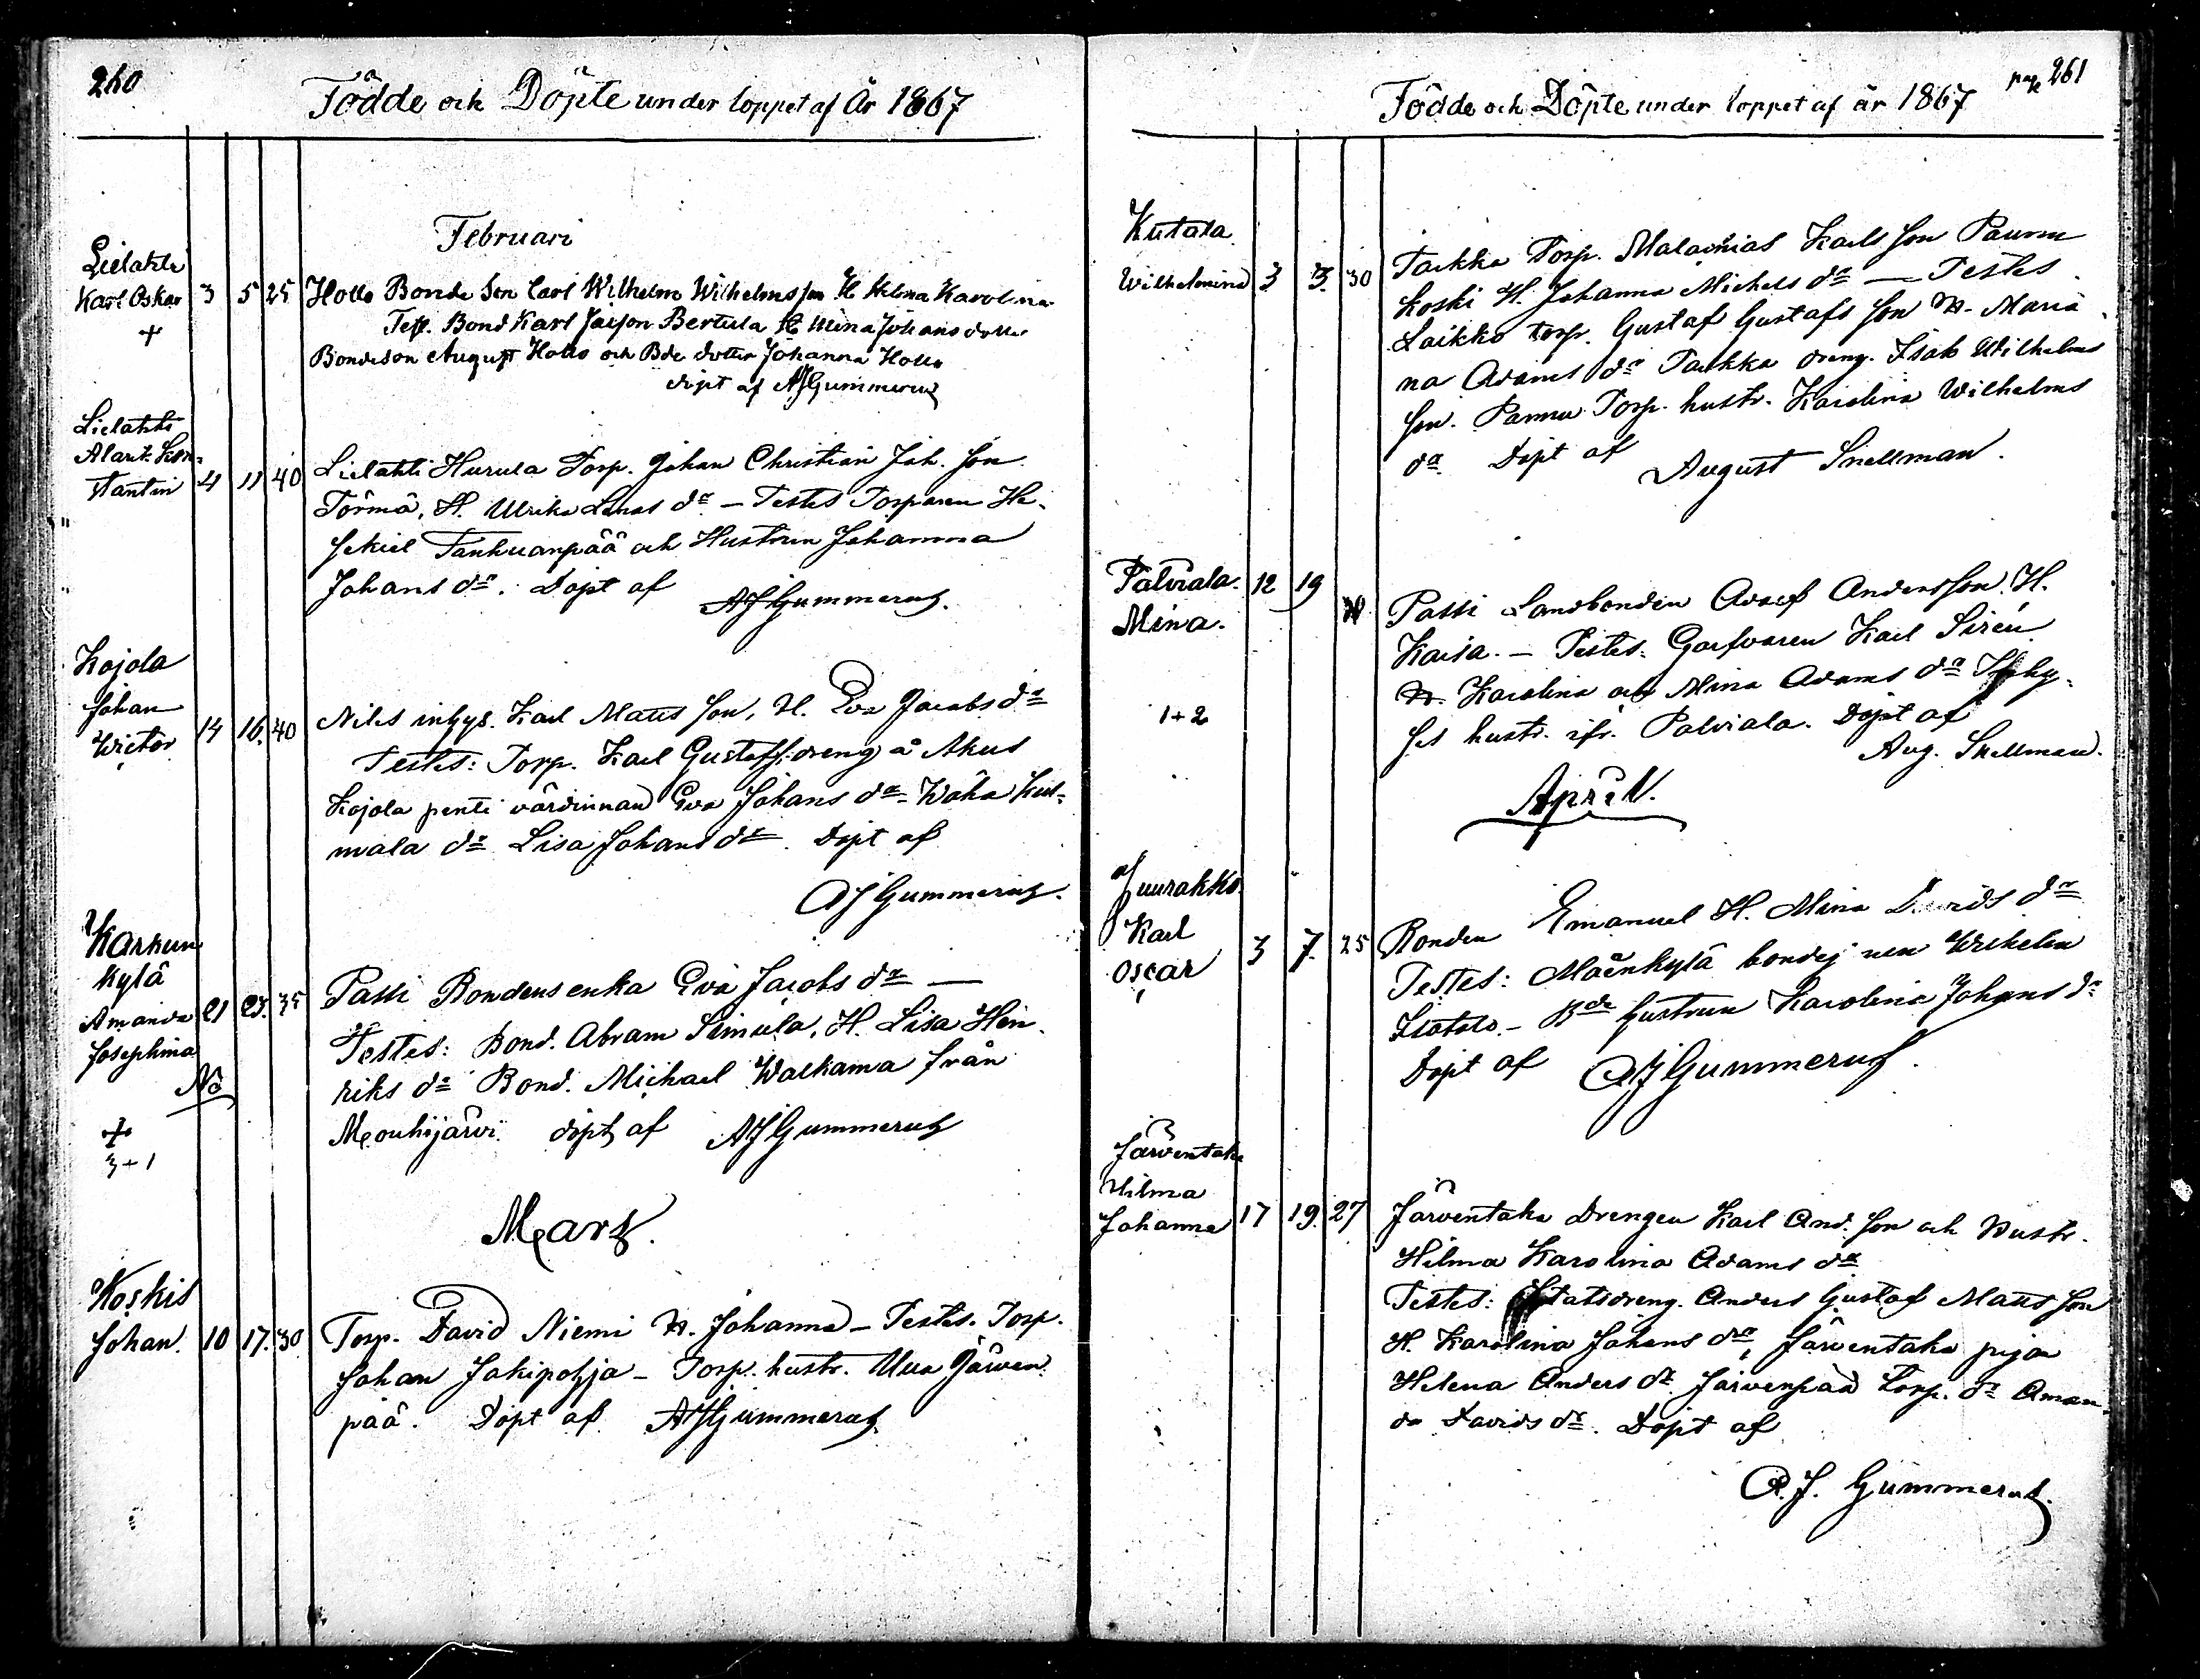 260
Födde och Döpte under loppet af År 1867
Februari
Lielahti
Karl Oskar 3 5 25 Hollo Bonde Son Carl Wilhelm Wilhelmsson H. Hilma Karolina
+
Test. Bond Karl Bertula H. Mina Johansdotter
Bondeson August Hollo och Bde dotter Johanna Hollo
döpt af AJGummerus
Lielahti
Alart. Kon-
stantin 4 11 40 Lielahti Hurula Torp. Johan Christian Joh. Son
Törmä, H. Ulrika dr — Testes Torparen He-
sekiel Tanhuanpää och Hustrun Johanna
Johans dr. Döpt af
AJGummerus.
Kojola
Johan
Victor 14 16. 40 Nils inhys. Karl Matts son, H. Eva Jacobs dr
Testes: Torp. Karl Gustafs. dreng å Ahus
Kojola penti värdinnan Eva Johans dr Waha Kul-
mala dr Lisa Johans dr. Döpt af
AJGummerus.
Karkun
kylä
Amanda 21 23. 35 Passi Bondens enka Eva Jacobs dr —
Josephina
No
+
3+1
Testes: Bond. Abram Simula, H. Lisa Hen-
riks dr Bond. Michael Walkama från
Mouhijärvi. döpt af AJGummerus
Mars.
Koskis
Johan. 10 17. 30. Torp. David Niemi H. Johanna — Testes. Torp.
Johan Jokipohja — Torp. hustr. Ulla Järven-
pää. Döpt af AJGummerus
pag 261
Födde och Döpte under loppet af år 1867
Kutala
Wilhelmina 3 3. 30 Taikka Torp. Malachias Karls son Pannu
koski H. Johanna Michels dr — Testes
Laikko torp. Gustaf Gustafs son H. Maria
na Adams dr Taikka dreng. Isak Wilhelms
son. Pannu Torp. hustr. Karolina Wilhelms
dr. Döpt af
August Snellman.
Palviala. 12 19
Mina.
1+2
Passi Landbonden Adolf Andersson. H.
Kaisa. — Testes. Garfvaren Karl Sirén
H. Karolina och Mina Adams dr
hustr. ifr. Palviala. Döpt af
Aug. Snellman.
April.
Juurakko
Karl
Oscar 3 7. 25 Bonden Emanuel H. Mina Davids dr
Testes: Mäenkylä Wilhelm
Bde hustrun Karolina Johans dr
Döpt af AJGummerus.
Järventaka
Hilma
Johanna 17 19. 27 Järventaka Drengen Karl And. son och Hustr.
Hilma Karolina Adams dr
Testes: Statsdreng. Anders Gustaf Matts son
H. Karolina Johans dr, Järventaka pigan
Helena Anders dr Järvenpää torp. dr Aman-
da Davids dr. Döpt af
A. J. Gummerus.